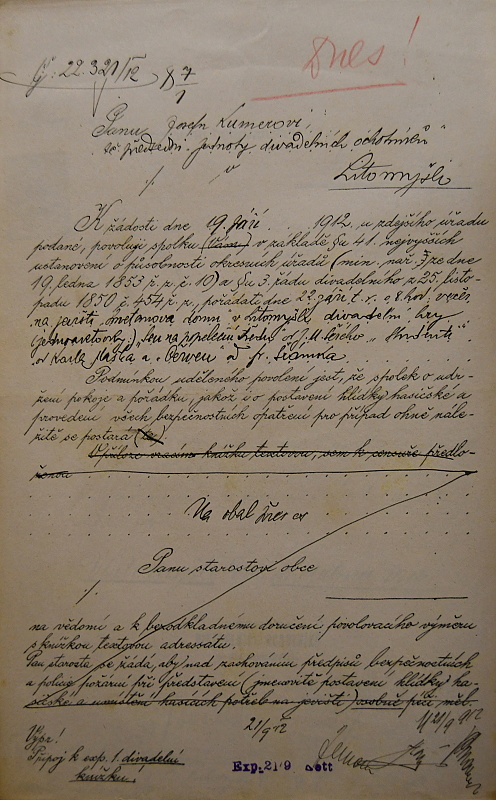 Dnes!
Č: 22.321/12 87/1
Panu Josefu Kumerovi,
předsedovi jednoty divadelních ochotníků
v Litomyšli
K žádosti dne 19. září 1912 u zdejšího úřadu
podané, povoluji spolku (Vám) v základě §u 41. nejvyšších
ustanovení o působnosti okresních úřadů (min. nař. ze dne
19. ledna 1853 ř. z. č. 10) a §u 3. řádu divadelního z 25. listo-
padu 1850 č. 454 ř. z., pořádati dne 22. září t. r. o 8. hod. večer
na jevišti Smetanova domu v Litomyšli divadelní hry
(jednoaktovky), "Sen na
od Karla Maška a "Červen" od Fr. Šrámka.
Podmínkou uděleného povolení jest, že spolek o udr-
žení pokoje a pořádku, jakož i o postavení hlídky hasičské a
provedení všech bezpečnostních opatření pro případ ohně nále-
žitě se postará (te)
V příloze vracím knížku textovou, sem k censuře předlo-
ženou
Na obal
Panu starostovi obce
na vědomí a k bezodkladnému doručení povolovacího výměru
s knížkou textovou adressátu.
Pan starosta se žádá, aby nad zachováním předpisů bezpečnostních
a policie požární při představení (jmenovitě postavení hlídky ha-
sičské a umístění hasících potřeb na jevišti) osobně péči měl.
21/9 12
21/9 912
Vypr!
Připoj k exp. 1 divadelní
knížku.
Exp. 21/9